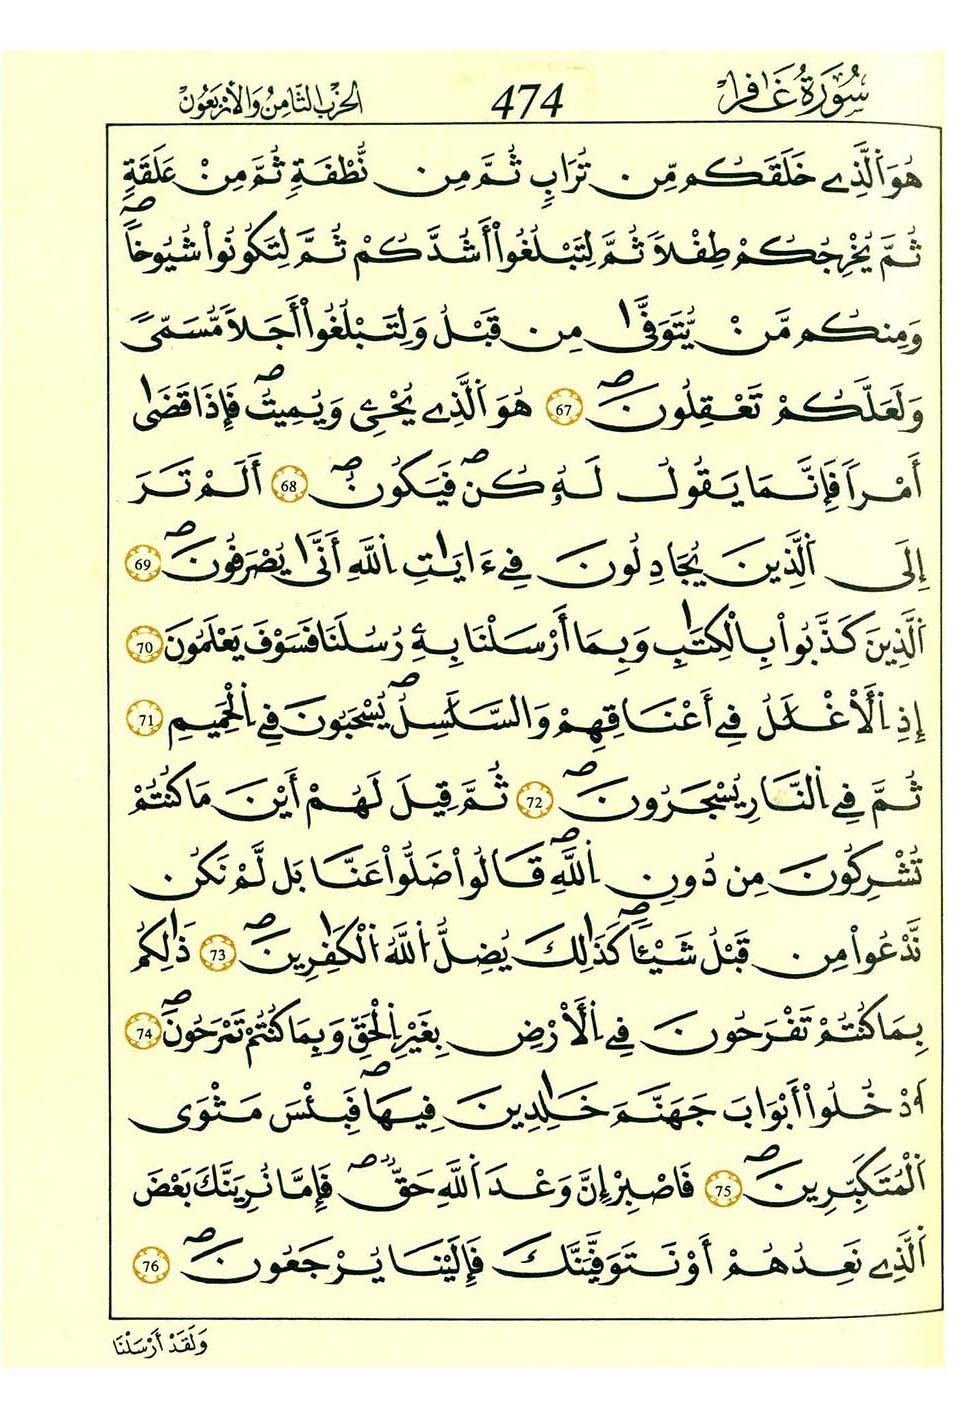 سُورَةُ غَافِر 474 الحِزْبُ الثَّامِنُ وَالْأَرْبَعُون
هُوَ اَ۬لَّذِے خَلَقَكُم مِّن تُرَابٖ ثُمَّ مِن نُّطْفَةٖ ثُمَّ مِنْ عَلَقَةٖ
ثُمَّ يُخْرِجُكُمْ طِفْلاٗ ثُمَّ لِتَبْلُغُوٓاْ أَشُدَّكُمْ ثُمَّ لِتَكُونُواْ شُيُوخاٗۖ
وَمِنكُم مَّنْ يُّتَوَفّ۪ىٰ مِن قَبْلُ وَلِتَبْلُغُوٓاْ أَجَلاٗ مُّسَمّىٗ
وَلَعَلَّكُمْ تَعْقِلُونَۖ 67 هُوَ اَ۬لَّذِے يُحْيِۦ وَيُمِيتُۖ فَإِذَا قَض۪ىٰٓ
أَمْراٗ فَإِنَّمَا يَقُولُ لَهُۥ كُنۖ فَيَكُونُۖ 68 أَلَمْ تَرَ
إِلَى اَ۬لذِينَ يُجَٰدِلُونَ فِےٓ ءَايَٰتِ اِ۬للَّهِ أَنّ۪ىٰ يُصْرَفُونَۖ 69
اَ۬لذِينَ كَذَّبُواْ بِالْكِتَٰبِ وَبِمَآ أَرْسَلْنَا بِهِۦ رُسُلَنَا فَسَوْفَ يَعْلَمُونَ 70
إِذِ اِ۬لَأغْلَٰلُ فِےٓ أَعْنَٰقِهِمْ وَالسَّلَٰسِلُۖ يُسْحَبُونَ فِے اِ۬لْحَمِيمِ 71
ثُمَّ فِے اِ۬لنَّارِ يُسْجَرُونَۖ 72 ثُمَّ قِيلَ لَهُمْ أَيْنَ مَا كُنتُمْ
تُشْرِكُونَ مِن دُونِ اِ۬للَّهِۖ قَالُواْ ضَلُّواْ عَنَّا بَل لَّمْ نَكُن
نَّدْعُواْ مِن قَبْلُ شَيْـٔاٗۖ كَذَٰلِكَ يُضِلُّ اُ۬للَّهُ اُ۬لْكَٰفِرِينَۖ 73 ذَٰلِكُم
بِمَا كُنتُمْ تَفْرَحُونَ فِے اِ۬لَأرْضِ بِغَيْرِ اِ۬لْحَقِّ وَبِمَا كُنتُمْ تَمْرَحُونَۖ 74
اَ۟دْخُلُوٓاْ أَبْوَٰبَ جَهَنَّمَ خَٰلِدِينَ فِيهَاۖ فَبِئْسَ مَثْوَى
اَ۬لْمُتَكَبِّرِينَۖ 75 فَاصْبِرِ اِنَّ وَعْدَ اَ۬للَّهِ حَقّٞۖ فَإِمَّا نُرِيَنَّكَ بَعْضَ
اَ۬لذِے نَعِدُهُمْ أَوْ نَتَوَفَّيَنَّكَ فَإِلَيْنَا يُرْجَعُونَۖ 76
وَلَقَدْ أَرْسَلْنَا